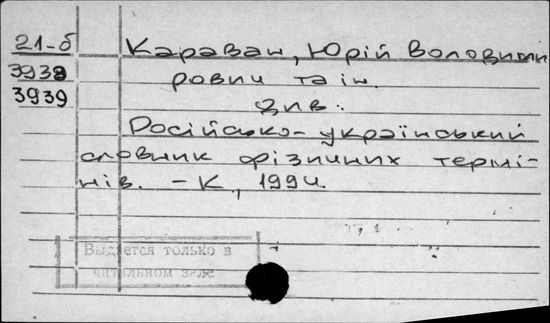 21-б Караван, Юрій Володими
3938 рович та ін.
3939 див.
Російсько-український
словник фізичних термі-
нів. - К, 1994
Выдается только в
читальном зале